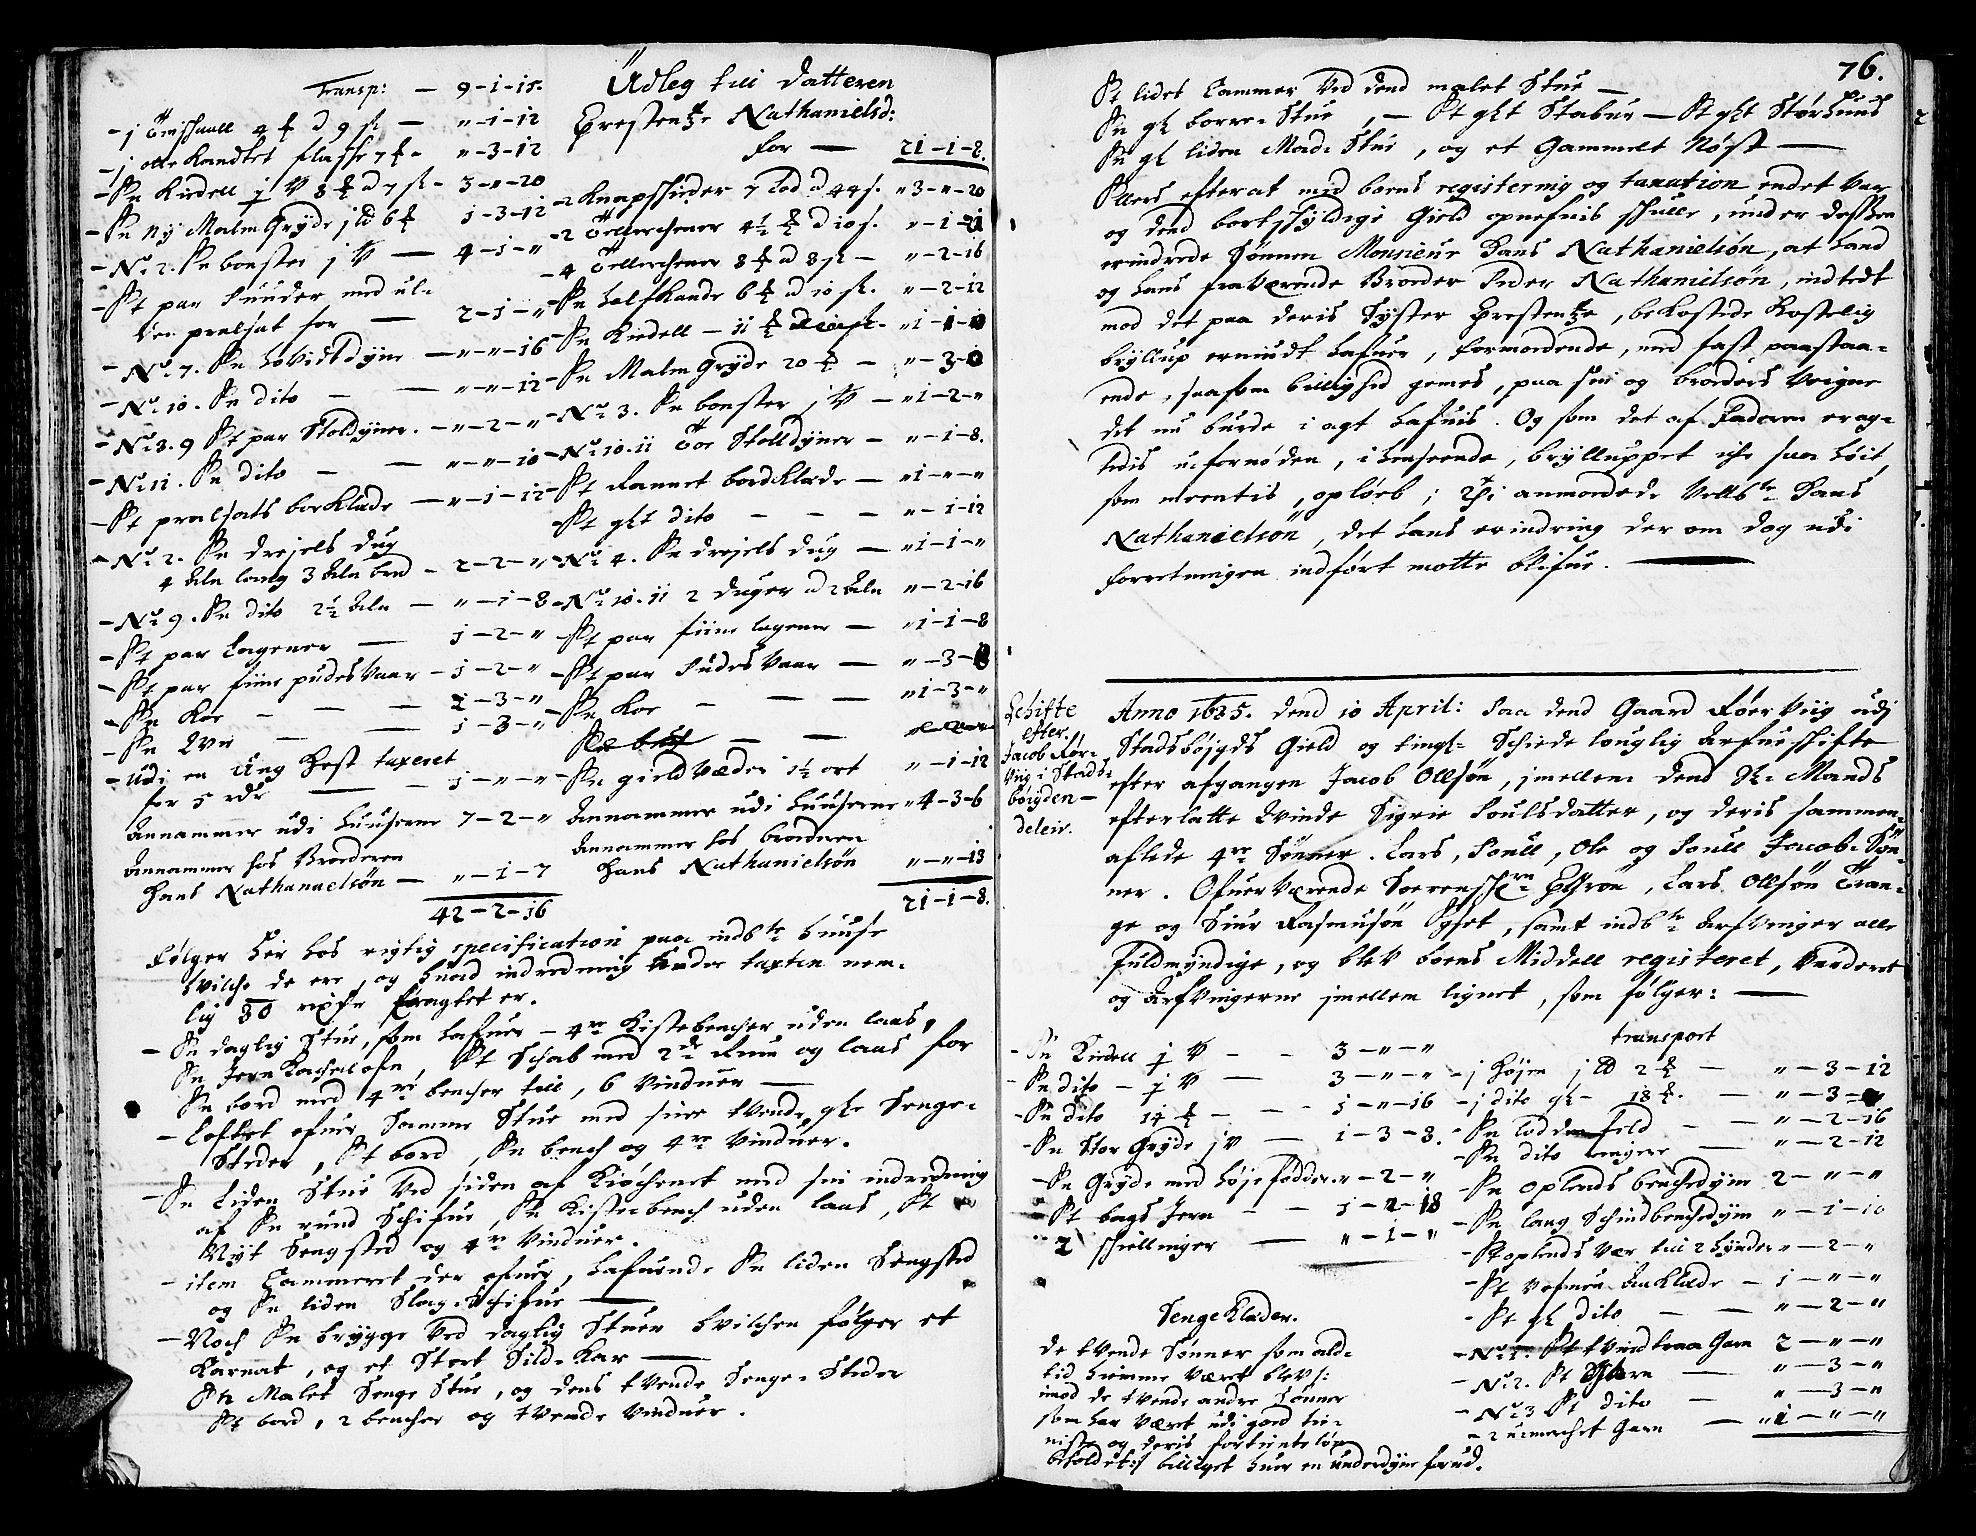 Transp: — 9-1-15.
- 1 ▢ 4 ₰ à 9 ſl — "-1-12
- 1 otte Kandtet flasche 7 ₰ - "-3-12
- En Kiedell 1 V 8 ₰ à 7 ſl - 3-"-20
- En ny Malm Gryde 1 ld 6 ₰ 1-3-12
- No 2. En boenster 1 V — 4-1-"
- Et par ▢ med ul-
len ▢ for — 2-1-"
- No 7. En Hovidtdyne — "-"-16
- No 10. En dito — "-"-12
- No 3. 9 Et par Stoldyner. — "-2-"
- No 11. En dito — — "-"-10
- Et ▢ borklæde — "-1-12
- No 2. En drejels dug
4 Alen lang 3 Alen bred - 2-2-"
- No 9. En dito 2½ Alen — "-1-8
- Et par Lagener — 1-2-"
- Et par fiine pudesvaar - 1-2-"
- En Koe - - — 2-3-"
- En Qvie - — 1-3-"
- Udi en Ung Hest taxeret
for 5 rdr — - 1-"-"
Annammer udi Huuserne 7-2-"
Annammer hos Broderen
Hans Nathanaelsøn — "-1-7
42-2-16
Udleg till datteren
Crestentze Nathanielsd:
for — 21-1-8.
- 2 Knapscheeder 7 Lod à 44 ſ. "3-"-20
- 2 Tellerchener 4½ ₰ à 10 ſ. "-1-21
- 4 Tellerchener 8 ₰ à 8 ſl — "-2-16
- En halfkande 6 ₰ à 10 ſl. "-2-12
- En Kiedell - 11 ₰ ▢ "1-1-10
- En Malm Gryde 20 ₰ — "-3-▢
- No 3. En boenster 1 V — "1-2-"
- No 10. 11 Toe Stolldyner — "-1-8.
- Et Rannet bordklæde — "1-"-"
- Et glt dito - - — "-1-12
- No 4. En drejels dug — "1-1-"
- No 10. 11 2 duger à 2 Alen "-2-16
- Et par fiine lagener — "1-1-8
- Et par Pudesvaar — "-3-18
- En Koe - — — "1-3-"
- En gield Væder 1½ ort "-1-12
Annammer udi Huuserne "4-3-6
Annammer hos broderen
Hans Nathanielsøn "-"-13
21-1-8.
Følger her hos rigtig specification paa indbte Huuse
hvilche de ere, og huad indredning under taxten nem-
lig 80 rixdr fragtet er.
- En daglig Stue, som hafuer - 4re Kistebencher uden laas,
En Jern Kachelofn, Et Schab med 2de Rum og laas for
En bord med 4re bencher till, 6 vinduer —
- Loftet ofuer samme Stue med sine tvende gle Senge-
steder, Et bord, En bench og 4re Vinduer.
- En liden Stue ved siden af Kiøchenet med sin indredning
af En rund Schifue, En Kistebench uden laas, Et
Nyt Sengsted og 4re Vinduer.
- item Cammeret der ofuer, hafuende En liden Sengsted
og En liden Slag-Schifue —
- Noch En brygge ved daglig Stuen hvilchen følger et
Karnat, og et Stort Sild-Kar —
En Malet Senge Stue, og dens tvende Senge-Steder
Et bord, 2 bencher og tvende Vinduer.
76.
Et lidet Cammer ved dend malet Stue —
En gl borre-Stue, — Et glt Stabur — Et glt Størhuus
En gl liden Mad-Stue, og et Gammelt Nøst —
Ellers efterat med boens registering og taxation endet var
og dend bortskyldige Gield opnefnis skulle, under dessen
erindrede Sønnen Monsieur Hans Nathanielsøn, at hand
og hans fraværende Broeder Peder Nathanielsøn, indtedt
mod det paa deris Syster Crestentze, bekostede Kostelig
bryllup ermindt hafuer, formodende, med fast paastaa-
ende, saasom billighed gemes, paa sin og broders Vegne
det nu burde i agt hafuis. Og som det af Faderen erag-
tedis ufornøden, i henseende, brylluppet iche saa høit,
som meentis, opløeb; ▢ anmodede Vellbte Hans
Nathanielsøn, det hans erindring der om dog udi
forretningen indført motte blifue. —
Schifte
efter
Jacob Rør-
viig i Stads-
bøigden —
deleir.
Anno 1685. dend 10 April: paa dend Gaard Rørviig udj
Stadsbøigds Gield og tingl- Schiede louglig Arfueschifte
efter afgangen Jacob Ollsøn, jmellem dend Sl- Mands
efterlatte Qvinde Sigrie Poulsdatter, og deris sammen-
aflede 4re Sønner. Lars, Poull, Ole og Poull Jacob-Søn-
ner. Ofuerværende Soerenschrn ▢, Lars Ollsøn Tran-
ge og Siur Rasmusøn ▢, samt indbte Arfvinger alle
Fuldmyndige, og blev boens Middell registeret, Vurderet
og Arfvingerne jmellem lignet, som følger: —
- En Kiedell 1 V - - 3-"-"
- En dito - 1 V — 3-"-"
- En dito 14 ₰ - - - 1-"-16
- En Stor Gryde 1 V — 1-3-8.
- En Gryde med høje fødder "-2-"
- Et bags Jern - - 1-2-18
- 2 skiellinger — "-1-"
Sengeklæder.
de tvende Sønner som al-
tid hiemme været blev ſ:
imod de tvende andre Sønner
som har været udi goed tie-
niste og deris fortienteløn
beholdet:ſ billiget huer en underdyne forud.
transport
- 1 Højen 1 ld 2 ₰ — "-3-12
- 1 dito gl- 18 ₰. — "-3-▢
- En lodden feld - — "-2-16
- En dito ringere — "-2-12
- En Oplends benchedyne 2-"-"
- En lang Schindbenchedyne "-1-10
- Et oplends Vær till 2 Hynder "-2-"
- Et Vofuen Aaklæde - 1-"-"
- Et gl dito - — "-2-"
- No 1. Et tvindtraa Garn 2-"-"
- No 2. Et Garn — "-3-"
- No 3 Et dito - "-3-"
- 2 umachet Garn — "1-"-"